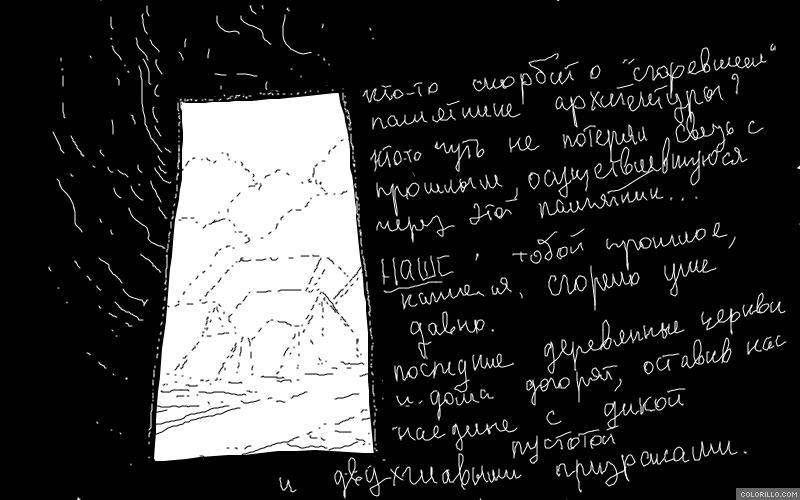 кто-то скорбит о "сгоревшем"
памятнике архитектуры?
кто-то чуть не потерял связь с
прошлым, осуществлявшуюся
через этот памятник...
НАШЕ с тобой прошлое,
кажется, сгорело уже
давно.
последние деревянные церкви
и дома догорят, оставив нас
наедине с дикой
пустотой
и двухглавыми призраками.
COLORILLO.COM